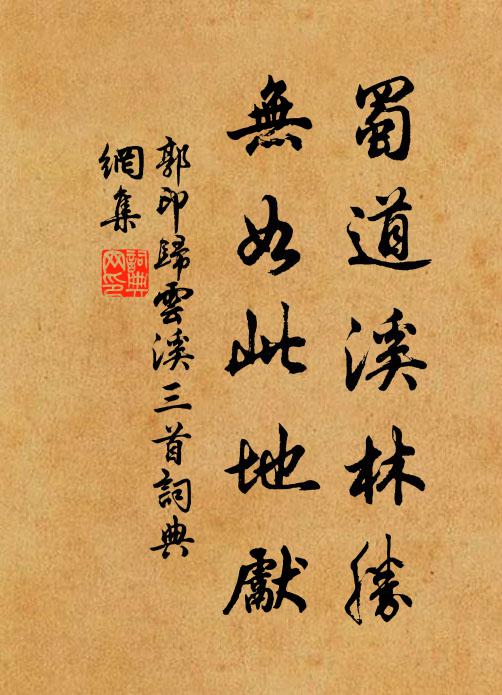 蜀道溪林勝
無如此地獻
郭印歸雲溪三首詞典
網集
詞典
网印